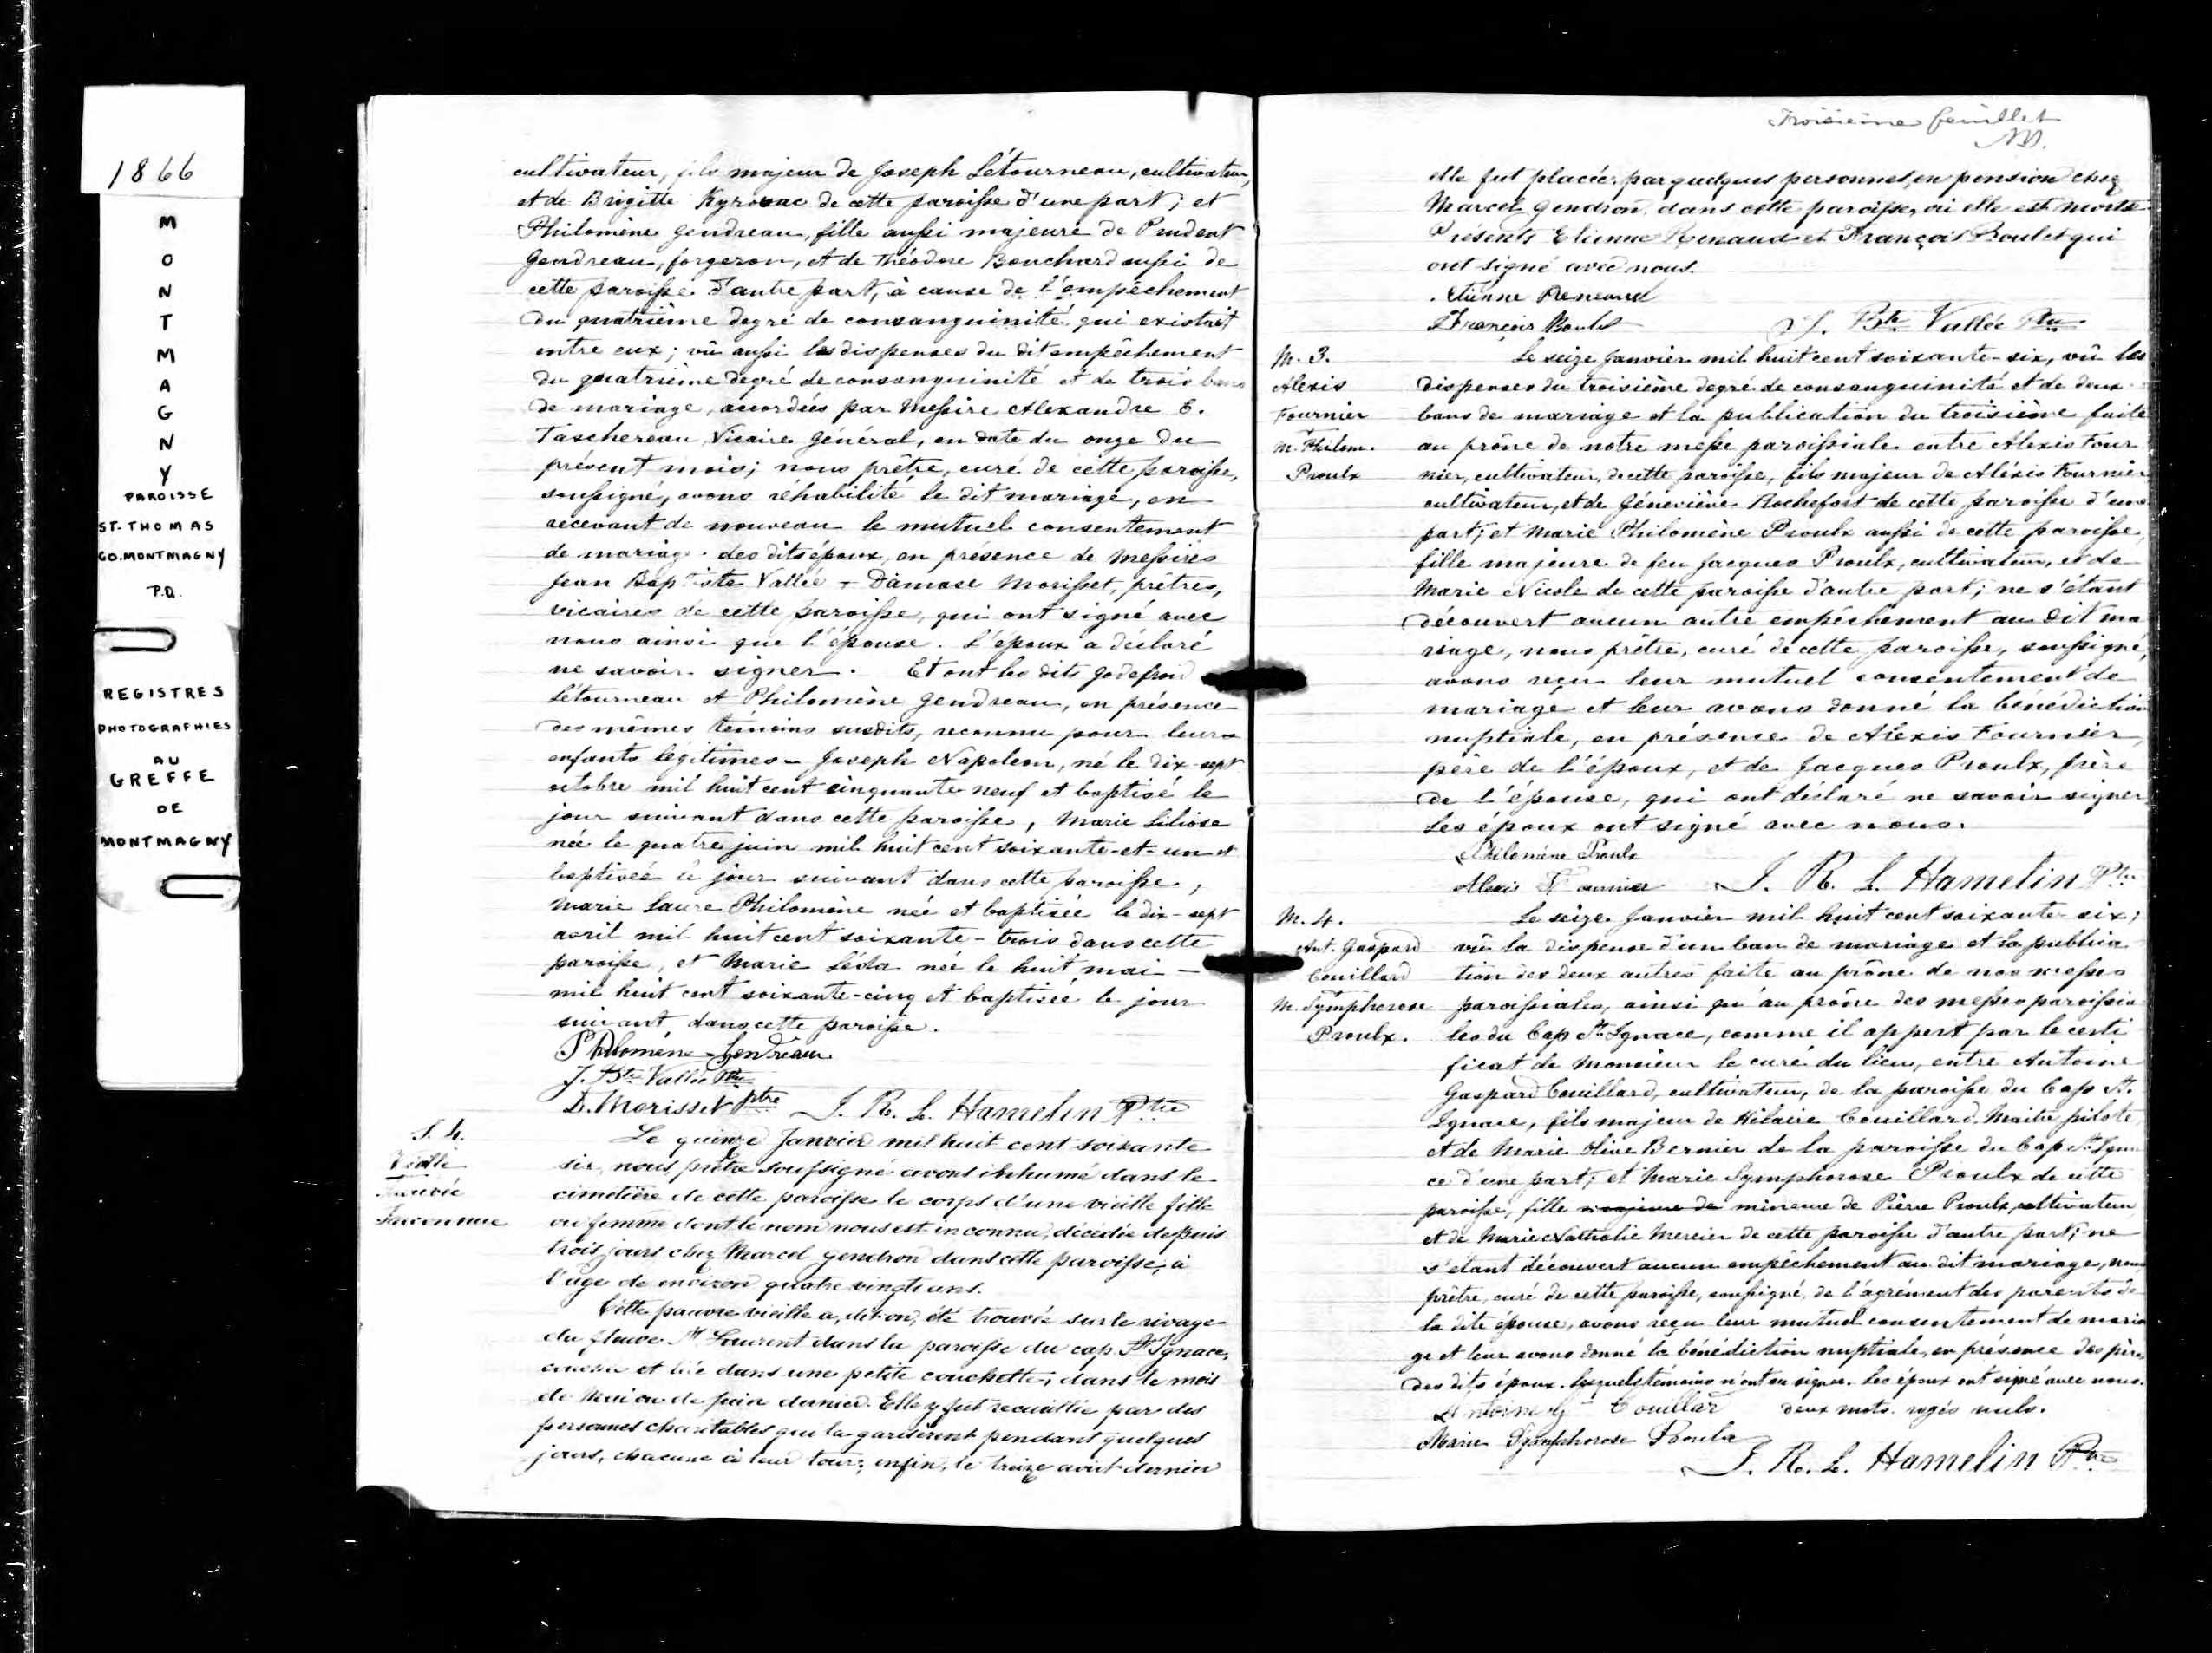 1866
M
O
N
T
M
A
G
N
Y
PAROISSE
ST. THOMAS
CO. MONTMAGNY
P.Q.
REGISTRES
PHOTOGRAPHIES
AU
GREFFE
DE
MONTMAGNY
cultivateur, fils majeur de Joseph Létourneau, cultivateur,
et de Brigitte Kyrouac de cette paroisse d'une part; et
Philomène Gendreau, fille aussi majeure de Prudent
Gendreau, forgeron, et de Théodore Bouchard aussi de
cette paroisse d'autre part, à cause de l'empêchement
du quatrième degré de consanguinité qui existait
entre eux; vû aussi les dispenses du dit empêchement
du quatrième degré de consanguinité et de trois bans
de mariage, accordées par Messire Alexandre E.
Taschereau, Vicaire Général, en date du onze du
présent mois; nous prêtre, curé de cette paroisse,
soussigné, avons réhabilité le dit mariage, en
recevant de nouveau le mutuel consentement
de mariage des dits époux, en présence de Messires
Jean Baptiste Vallée + Damase Morisset, prêtres,
vicaires de cette paroisse, qui ont signé avec
nous ainsi que l'épouse. L'époux a déclaré
ne savoir signer. Et ont les dits Godefroid
Létourneau et Philomène Gendreau, en présence
des mêmes témoins susdits, reconnu pour leurs
enfants légitimes - Joseph Napoléon, né le dix-sept
octobre mil huit cent cinquante-neuf et baptisé le
jour suivant dans cette paroisse, Marie Liliose
née le quatre juin mil huit cent soixante-et-un et
baptisée le jour suivant dans cette paroisse,
Marie Laure Philomène née et baptisée le dix-sept
avril mil huit cent soixante-trois dans cette
paroisse, et Marie Léda née le huit mai -
mil huit cent soixante-cinq et baptisée le jour
suivant dans cette paroisse.
Philomène Gendreau
J. Bte Vallée Ptre
D. Morisset ptre J. R. L. Hamelin Ptre
S. 4.
Vieille
Inconnue
Le quinze Janvier mil huit cent soixante
six, nous prêtre soussigné avons inhumé dans le
cimetière de cette paroisse le corps d'une vieille fille
ou femme dont le nom nous est inconnu, décédée depuis
trois jours chez Marcel Gendron dans cette paroisse, à
l'age de environ quatre vingts ans.
Cette pauvre vieille a, dit-on, été trouvée sur le rivage
du fleuve St Laurent dans la paroisse du cap St Ignace,
et liée dans une petite couchette, dans le mois
de Mai ou de Juin dernier. Elle y fut recueillie par des
personnes charitables qui la gardèrent pendant quelques
jours, chacune à leur tour; enfin, le treize août dernier
Troisième feuillet
elle fut placée, par quelques personnes, en pension chez
Marcel Gendron dans cette paroisse, où elle est morte.
Présents Etienne Renaud et François Boulet qui
ont signé avec nous.
Etienne Renaud
François Boulet J. Bte Vallée Ptre
M. 3.
Alexis
Fournier
+
M. Philom.
Proulx
Le seize Janvier mil huit cent soixante-six, vû les
dispenses du troisième degré de consanguinité et de deux
bans de mariage et la publication du troisième faite
au prône de notre messe paroissiale entre Alexis Four
nier, cultivateur, de cette paroisse, fils majeur de Alexis Fournier
cultivateur, et de Géneviève Rochefort de cette paroisse d'une
part; et Marie Philomène Proulx aussi de cette paroisse,
fille majeure de feu Jacques Proulx, cultivateur, et de
Marie Nicole de cette paroisse d'autre part; ne s'étant
découvert aucun autre empêchement au dit ma
riage, nous prêtre, curé de cette paroisse, soussigné,
avons reçu leur mutuel consentement de
mariage et leur avons donné la bénédiction
nuptiale, en présence de Alexis Fournier,
père de l'époux, et de Jacques Proulx, frère
de l'épouse, qui ont déclaré ne savoir signer
Les époux ont signé avec nous.
Philomène Proulx
Alexis Fournier J. R. L. Hamelin Ptre
M. 4.
Ant. Gaspard
Couillard
+
M. Symphorose
Proulx.
Le seize Janvier mil huit cent soixante-six;
vû la dispense d'un ban de mariage et la publica
tion des deux autres faite au prône de nos messes
paroissiales, ainsi qu'au prône des messes paroissia
les du Cap St. Ignace, comme il appert par le certi
ficat de Monsieur le curé du lieu, entre Antoine
Gaspard Couillard, cultivateur, de la paroisse du Cap St.
Ignace, fils majeur de Hilaire Couillard, Maitre pilote
et de Marie Olive Bernier de la paroisse du Cap St. Igna
ce d'une part; et Marie Symphorose Proulx de cette
paroisse, fille majeure de mineure de Pierre Proulx, cultivateur
et de Marie Nathalie Mercier de cette paroisse d'autre part; ne
s'étant découvert aucun empêchement au dit mariage, nous
prêtre, curé de cette paroisse, soussigné, de l'agrément des parents de
la dite épouse, avons reçu leur mutuel consentement de maria
ge et leur avons donné la bénédiction nuptiale, en présence des pères
des dits époux. Lesquels témoins n'ont su signer. Les époux ont signé avec nous.
Antoine G Couillar deux mots rayés nuls.
Marie Symphorose Proulx
J. R. L. Hamelin Ptre